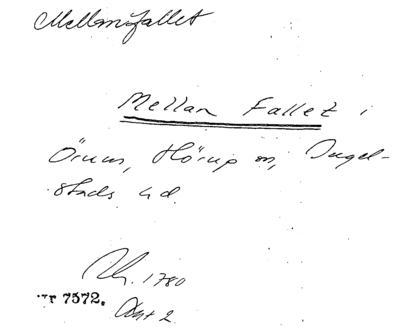 Mellanfallet
Mellan Fallet i
Örum, Hörup sn, Ingel-
stads hd.
1780
nr 7572. Akt 2